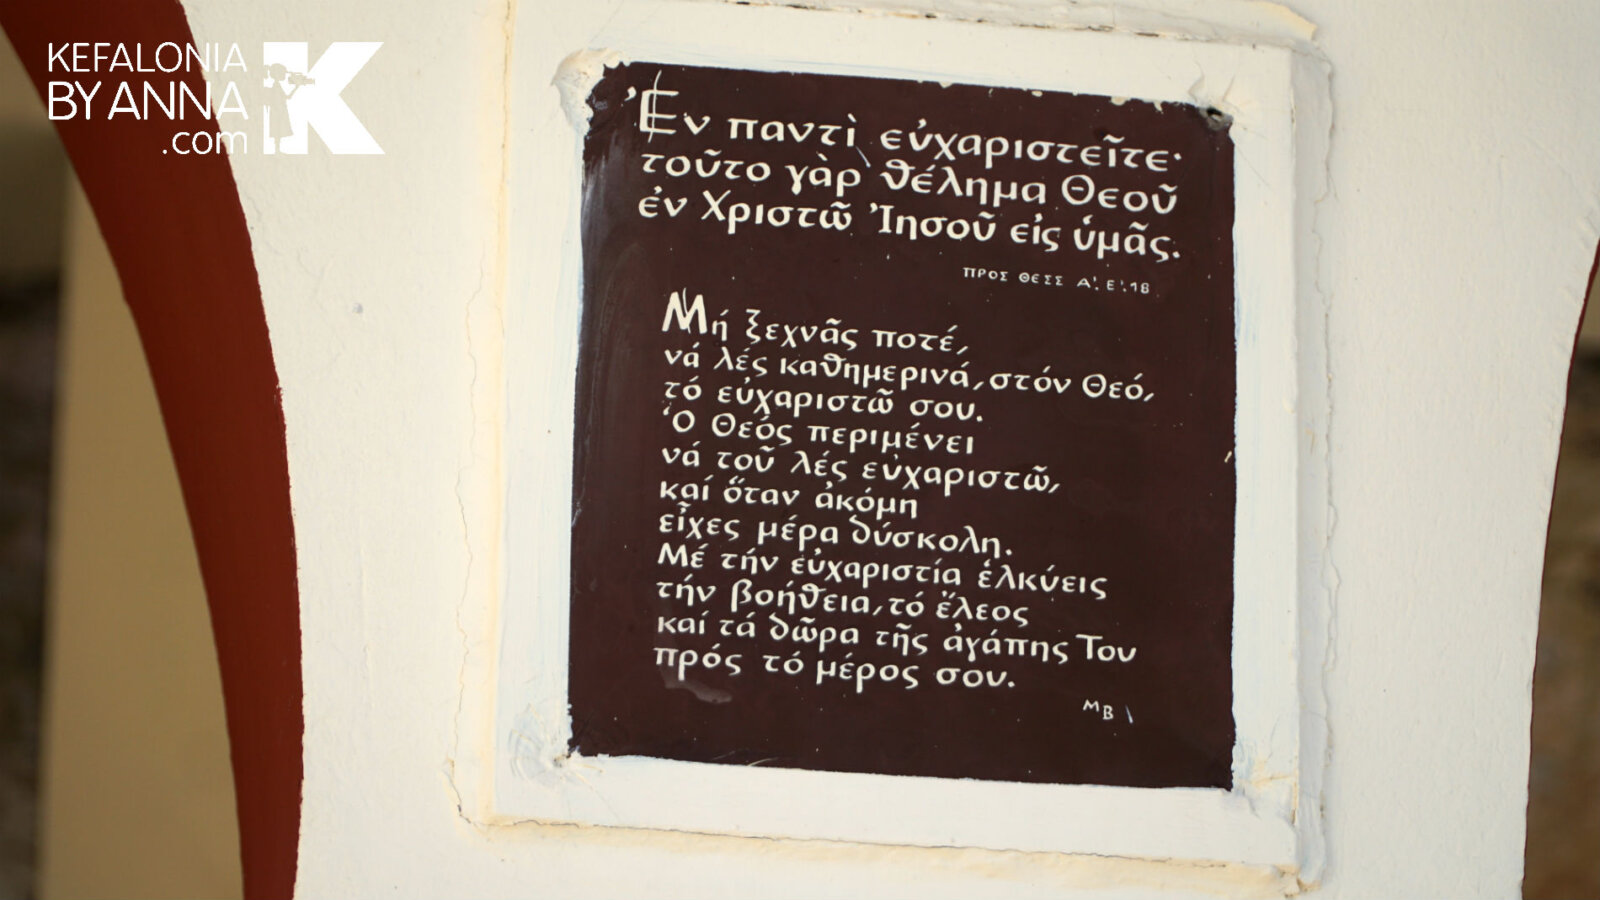 KEFALONIA
BY ANNA
.com
K
Ἐν παντὶ εὐχαριστεῖτε·
τοῦτο γὰρ θέλημα Θεοῦ
ἐν Χριστῷ Ἰησοῦ εἰς ὑμᾶς.
ΠΡΟΣ ΘΕΣΣ Α'. Ε'. 18
Μή ξεχνᾶς ποτέ,
νά λές καθημερινά, στόν Θεό,
τό εὐχαριστῶ σου.
Ὁ Θεός περιμένει
νά τοῦ λές εὐχαριστῶ,
καί ὅταν ἀκόμη
εἶχες μέρα δύσκολη.
Μέ τήν εὐχαριστία ἑλκύεις
τήν βοήθεια, τό ἔλεος
καί τά δῶρα τῆς ἀγάπης Του
πρός τό μέρος σου.
ΜΒ